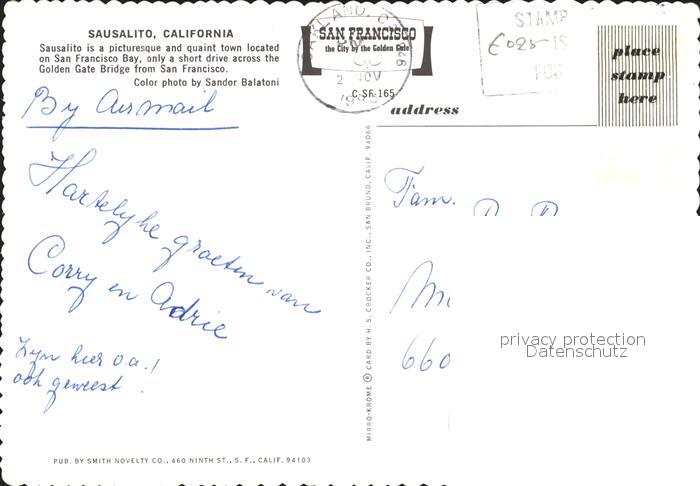 SAUSALITO, CALIFORNIA
Sausalito is a picturesque and quaint town located
on San Francisco Bay, only a short drive across the
Golden Gate Bridge from San Francisco.
Color photo by Sandor Balatoni
By Airmail
Hartelyke groeten van
Corry en Adrie
Zyn hier o.a.!
ook geweest.
PUB. BY SMITH NOVELTY CO., 460 NINTH ST., S. F., CALIF. 94103
MIRRO-KROME ® CARD BY H. S. CROCKER CO., INC., SAN BRUNO, CALIF. 94066
SAN FRANCISCO
the City by the Golden Gate
C-SF-165
OAKLAND, C
PM
2 NOV
STAMP
IS
FOR
place
stamp
here
address
Fam.
660
privacy protection
Datenschutz